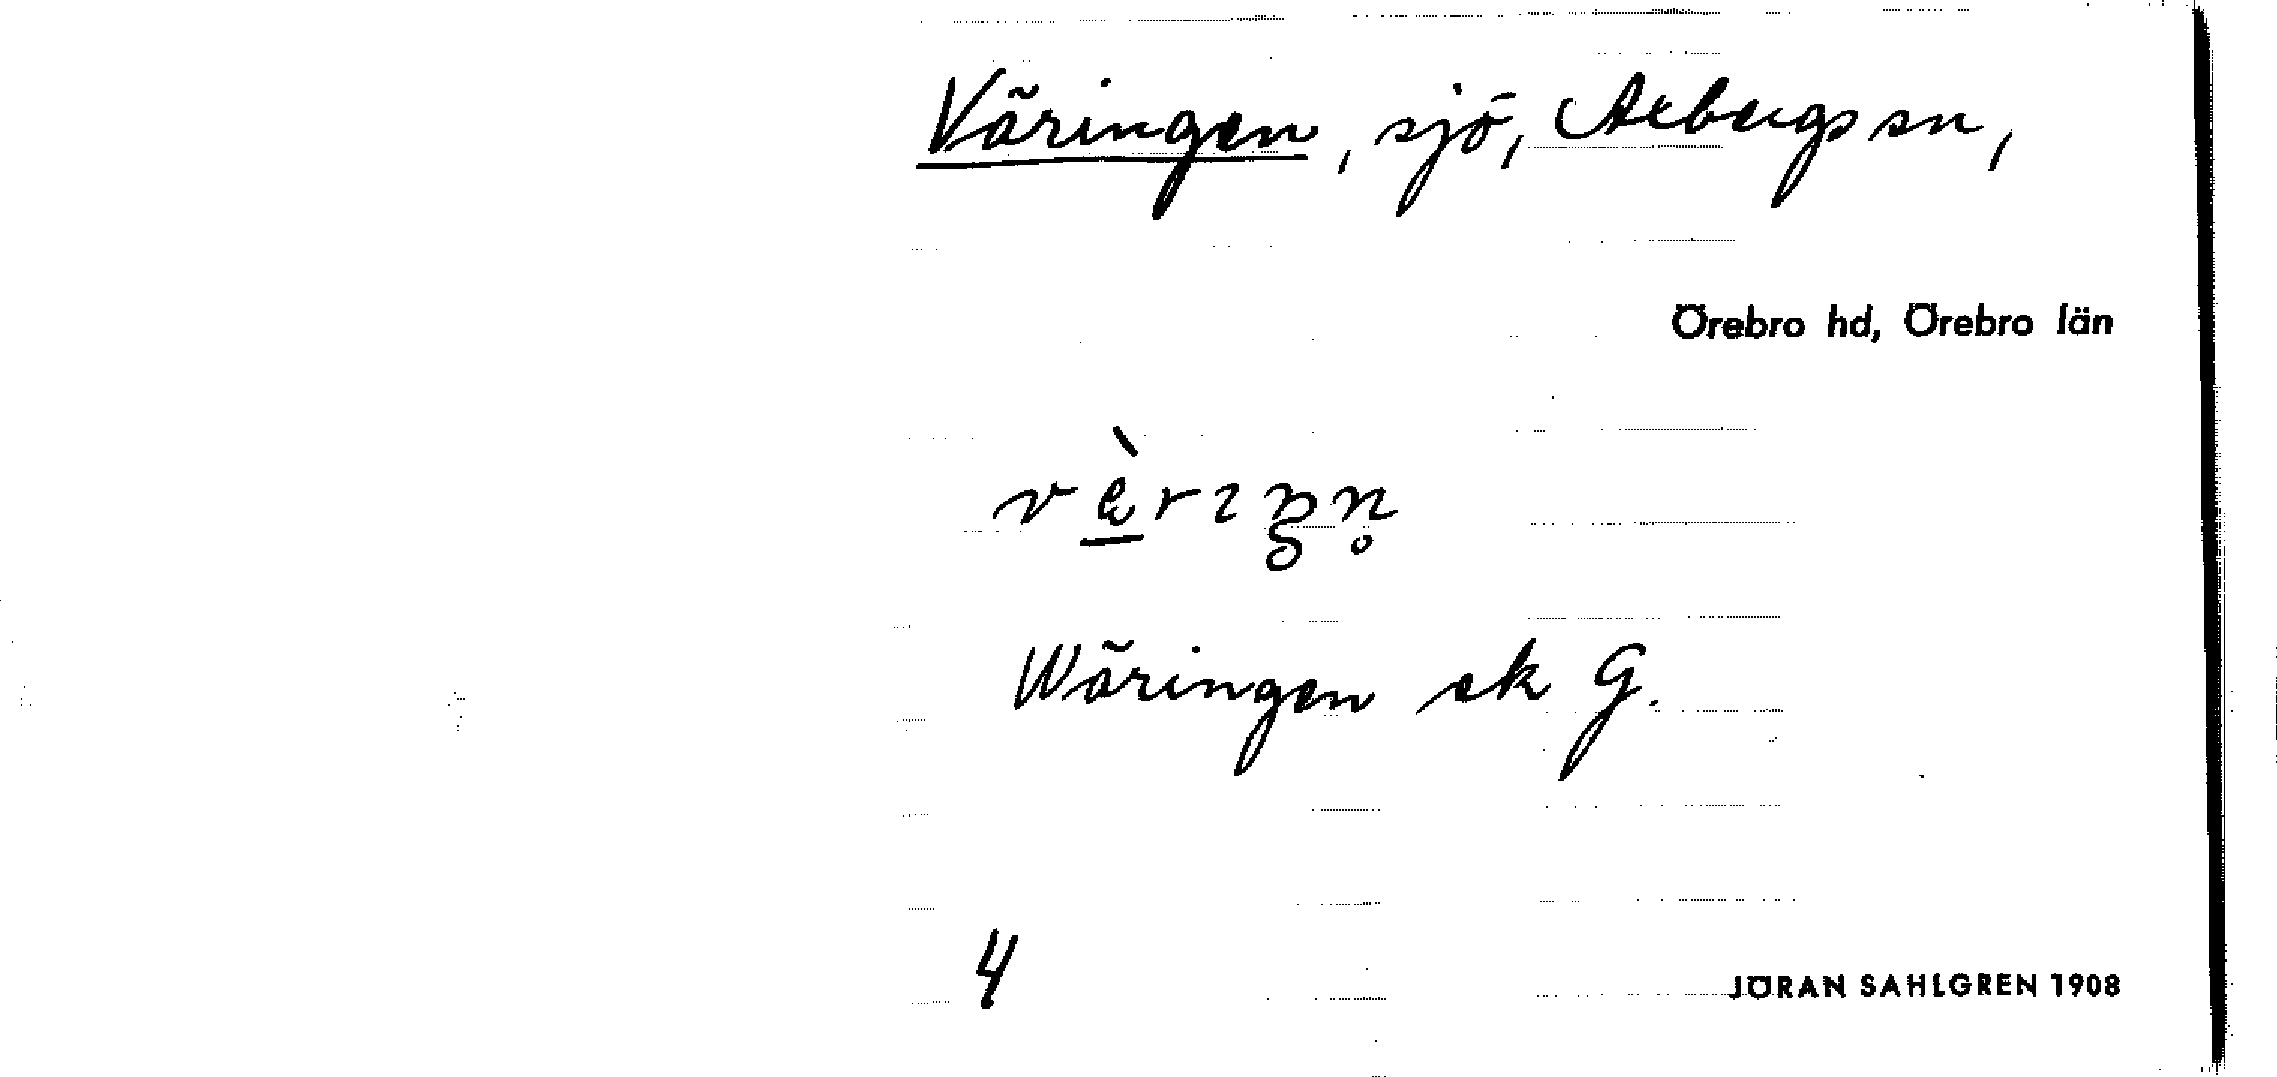 Väringen, sjö, Axbergs sn,
Örebro hd, Örebro län
Wäringen ek G.
4
JÖRAN SAHLGREN 1908